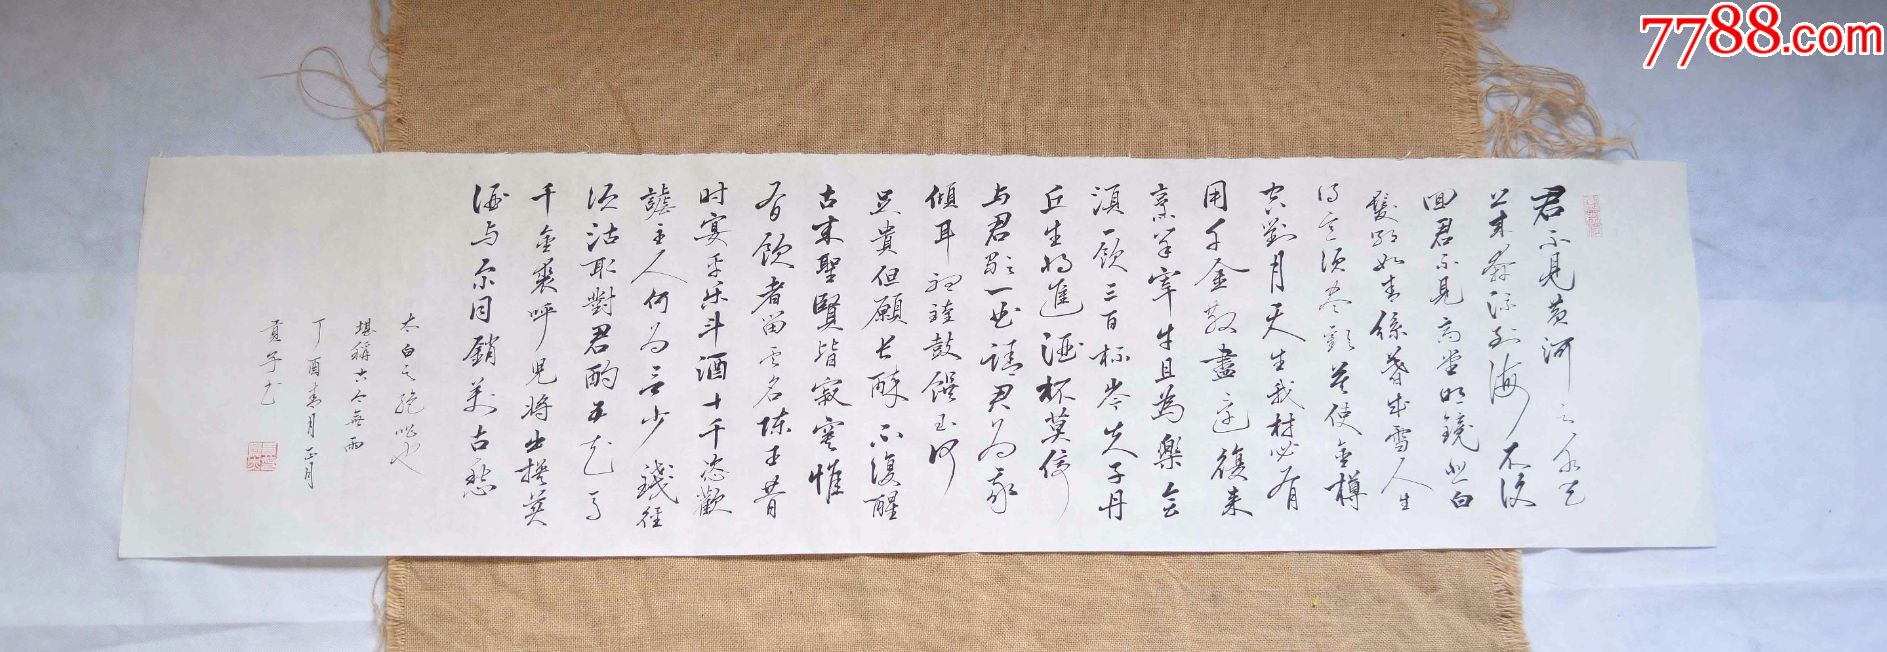 7788.com
君不見黄河之水天
上来奔流到海不復
回君不見高堂明鏡悲白
髮朝如青絲暮成雪人生
得意須尽歡莫使金樽
空對月天生我材必有
用千金散盡還復来
烹羊宰牛且為樂会
須一飲三百杯岑夫子丹
丘生将進酒杯莫停
与君歌一曲請君为我
傾耳聽鐘鼓饌玉何
足貴但願长醉不復醒
古来聖賢皆寂寞惟
有飲者留其名陈王昔
时宴平乐斗酒十千恣歡
謔主人何为言少錢徑
须沽取對君酌五花馬
千金裘呼児将出换美
酒与尔同銷萬古愁
太白之絶唱也
堪稱古今無兩
丁酉青月正月
貢子书